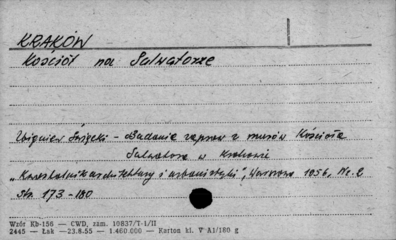 KRAKÓW
Kościół na Salwatorze
Zbigniew Święcki - Badanie zapraw z murów Kościoła
Salwatora w Krakowie
"Kwartalnik architektury i urbanistyki", Warszawa 1956, Nr. 2
Str. 173-180
Wzór Kb-156 — CWD, zam. 10837/T-1/II
2445 — Łsk —23.8.55 — 1.460.000 — Karton kl. V A1/180 g